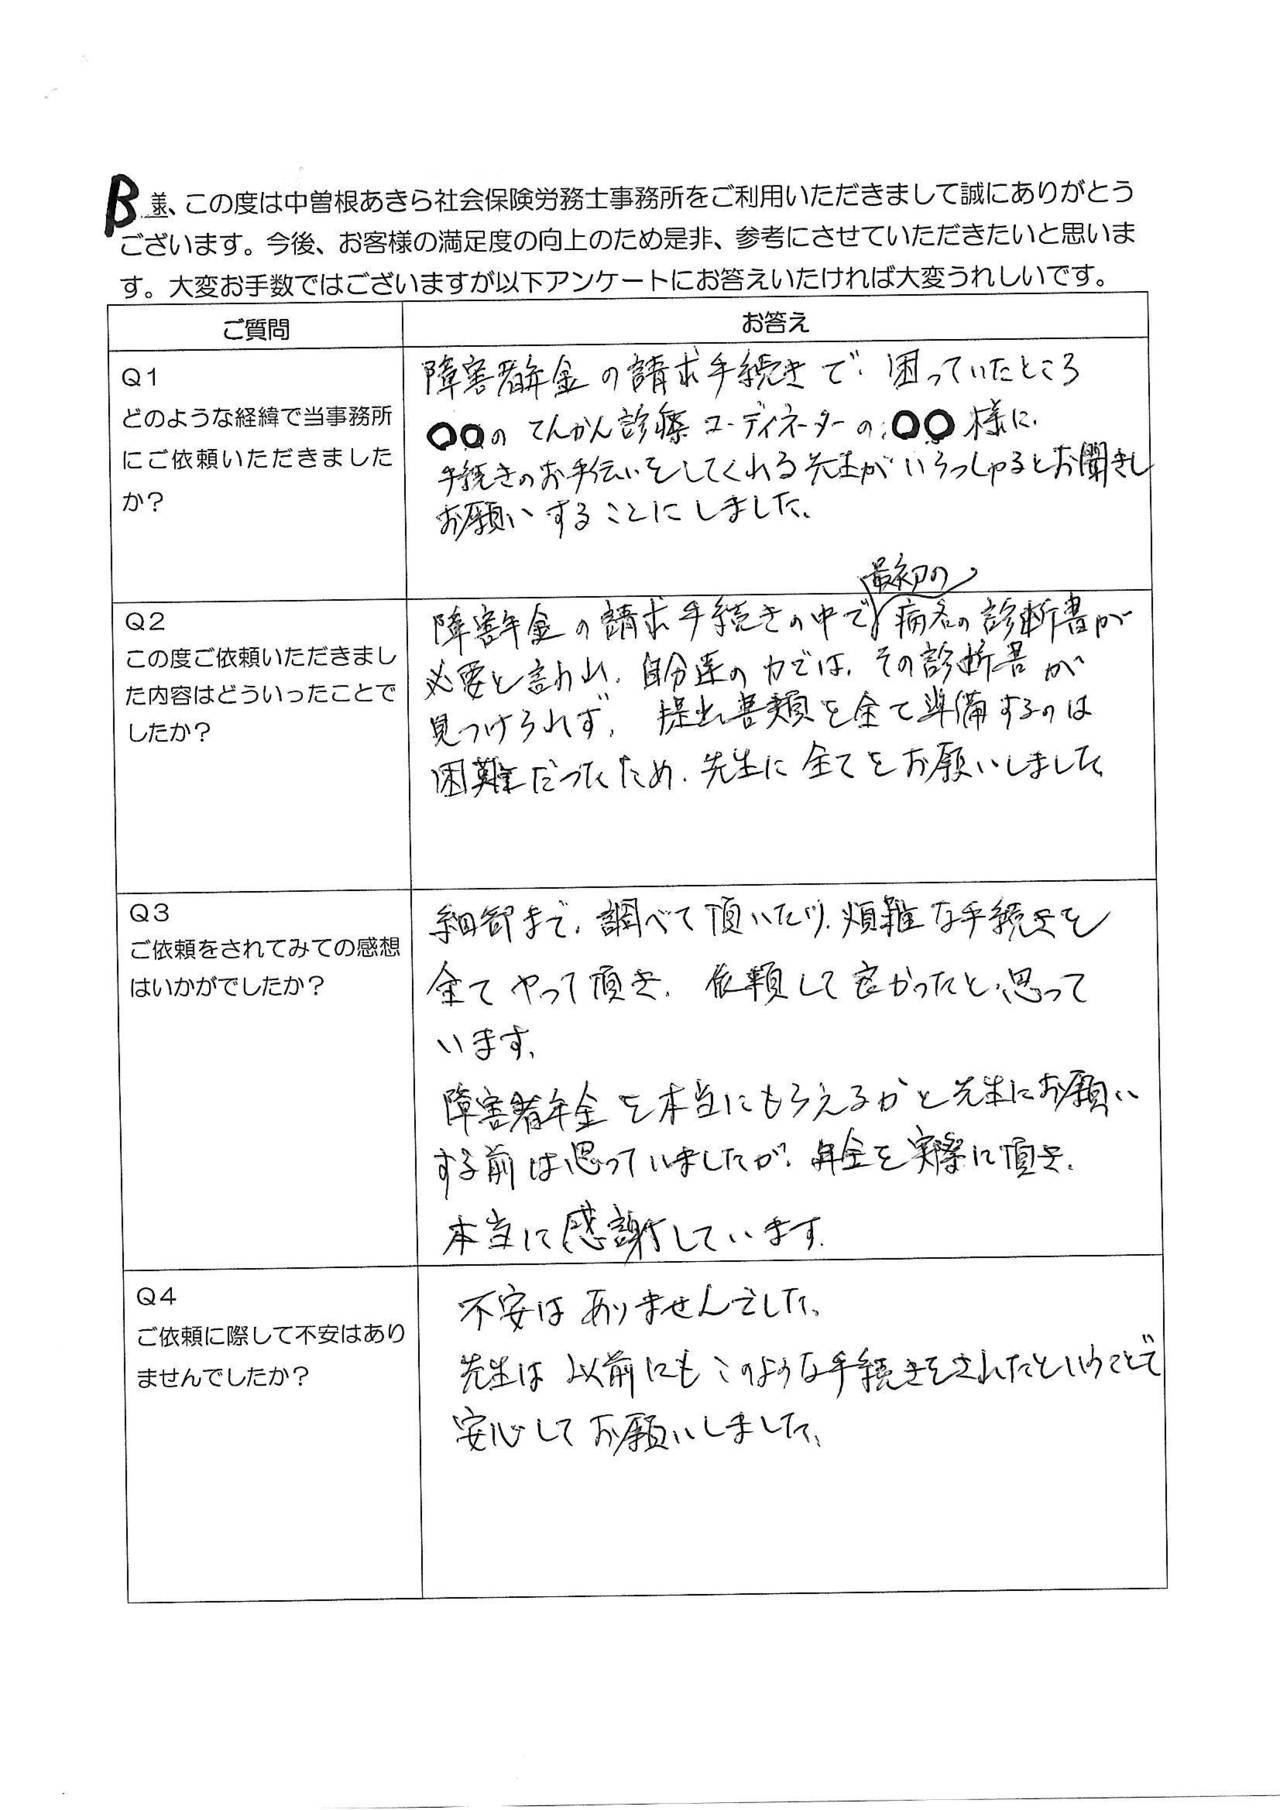 B 様、この度は中曽根あきら社会保険労務士事務所をご利用いただきまして誠にありがとう
ございます。今後、お客様の満足度の向上のため是非、参考にさせていただきたいと思いま
す。大変お手数ではございますが以下アンケートにお答えいたければ大変うれしいです。
ご質問
お答え
Q1
どのような経緯で当事務所
にご依頼いただきました
か?
障害者年金の請求手続きで、困っていたところ
〇〇の てんかん診療コーディネーターの、〇〇様に、
手続きのお手伝いをしてくれる先生がいらっしゃるとお聞きし
お願いすることにしました。
Q2
この度ご依頼いただきまし
た内容はどういったことで
したか?
最初の
障害年金の請求手続きの中で病名の診断書が
必要と言われ、自分達の力では、その診断書が
見つけられず、提出書類を全て準備するのは
困難だったため、先生に全てをお願いしました
Q3
ご依頼をされてみての感想
はいかがでしたか?
細部まで、調べて頂いたり、煩雑な手続きを
全てやって頂き、依頼して良かったと思って
います。
障害者年金を本当にもらえるかと先生にお願い
する前は思っていましたが、年金を実際に頂き、
本当に感謝しています。
Q4
ご依頼に際して不安はあり
ませんでしたか?
不安はありませんでした。
先生は以前にもこのような手続きをされたということで
安心してお願いしました。